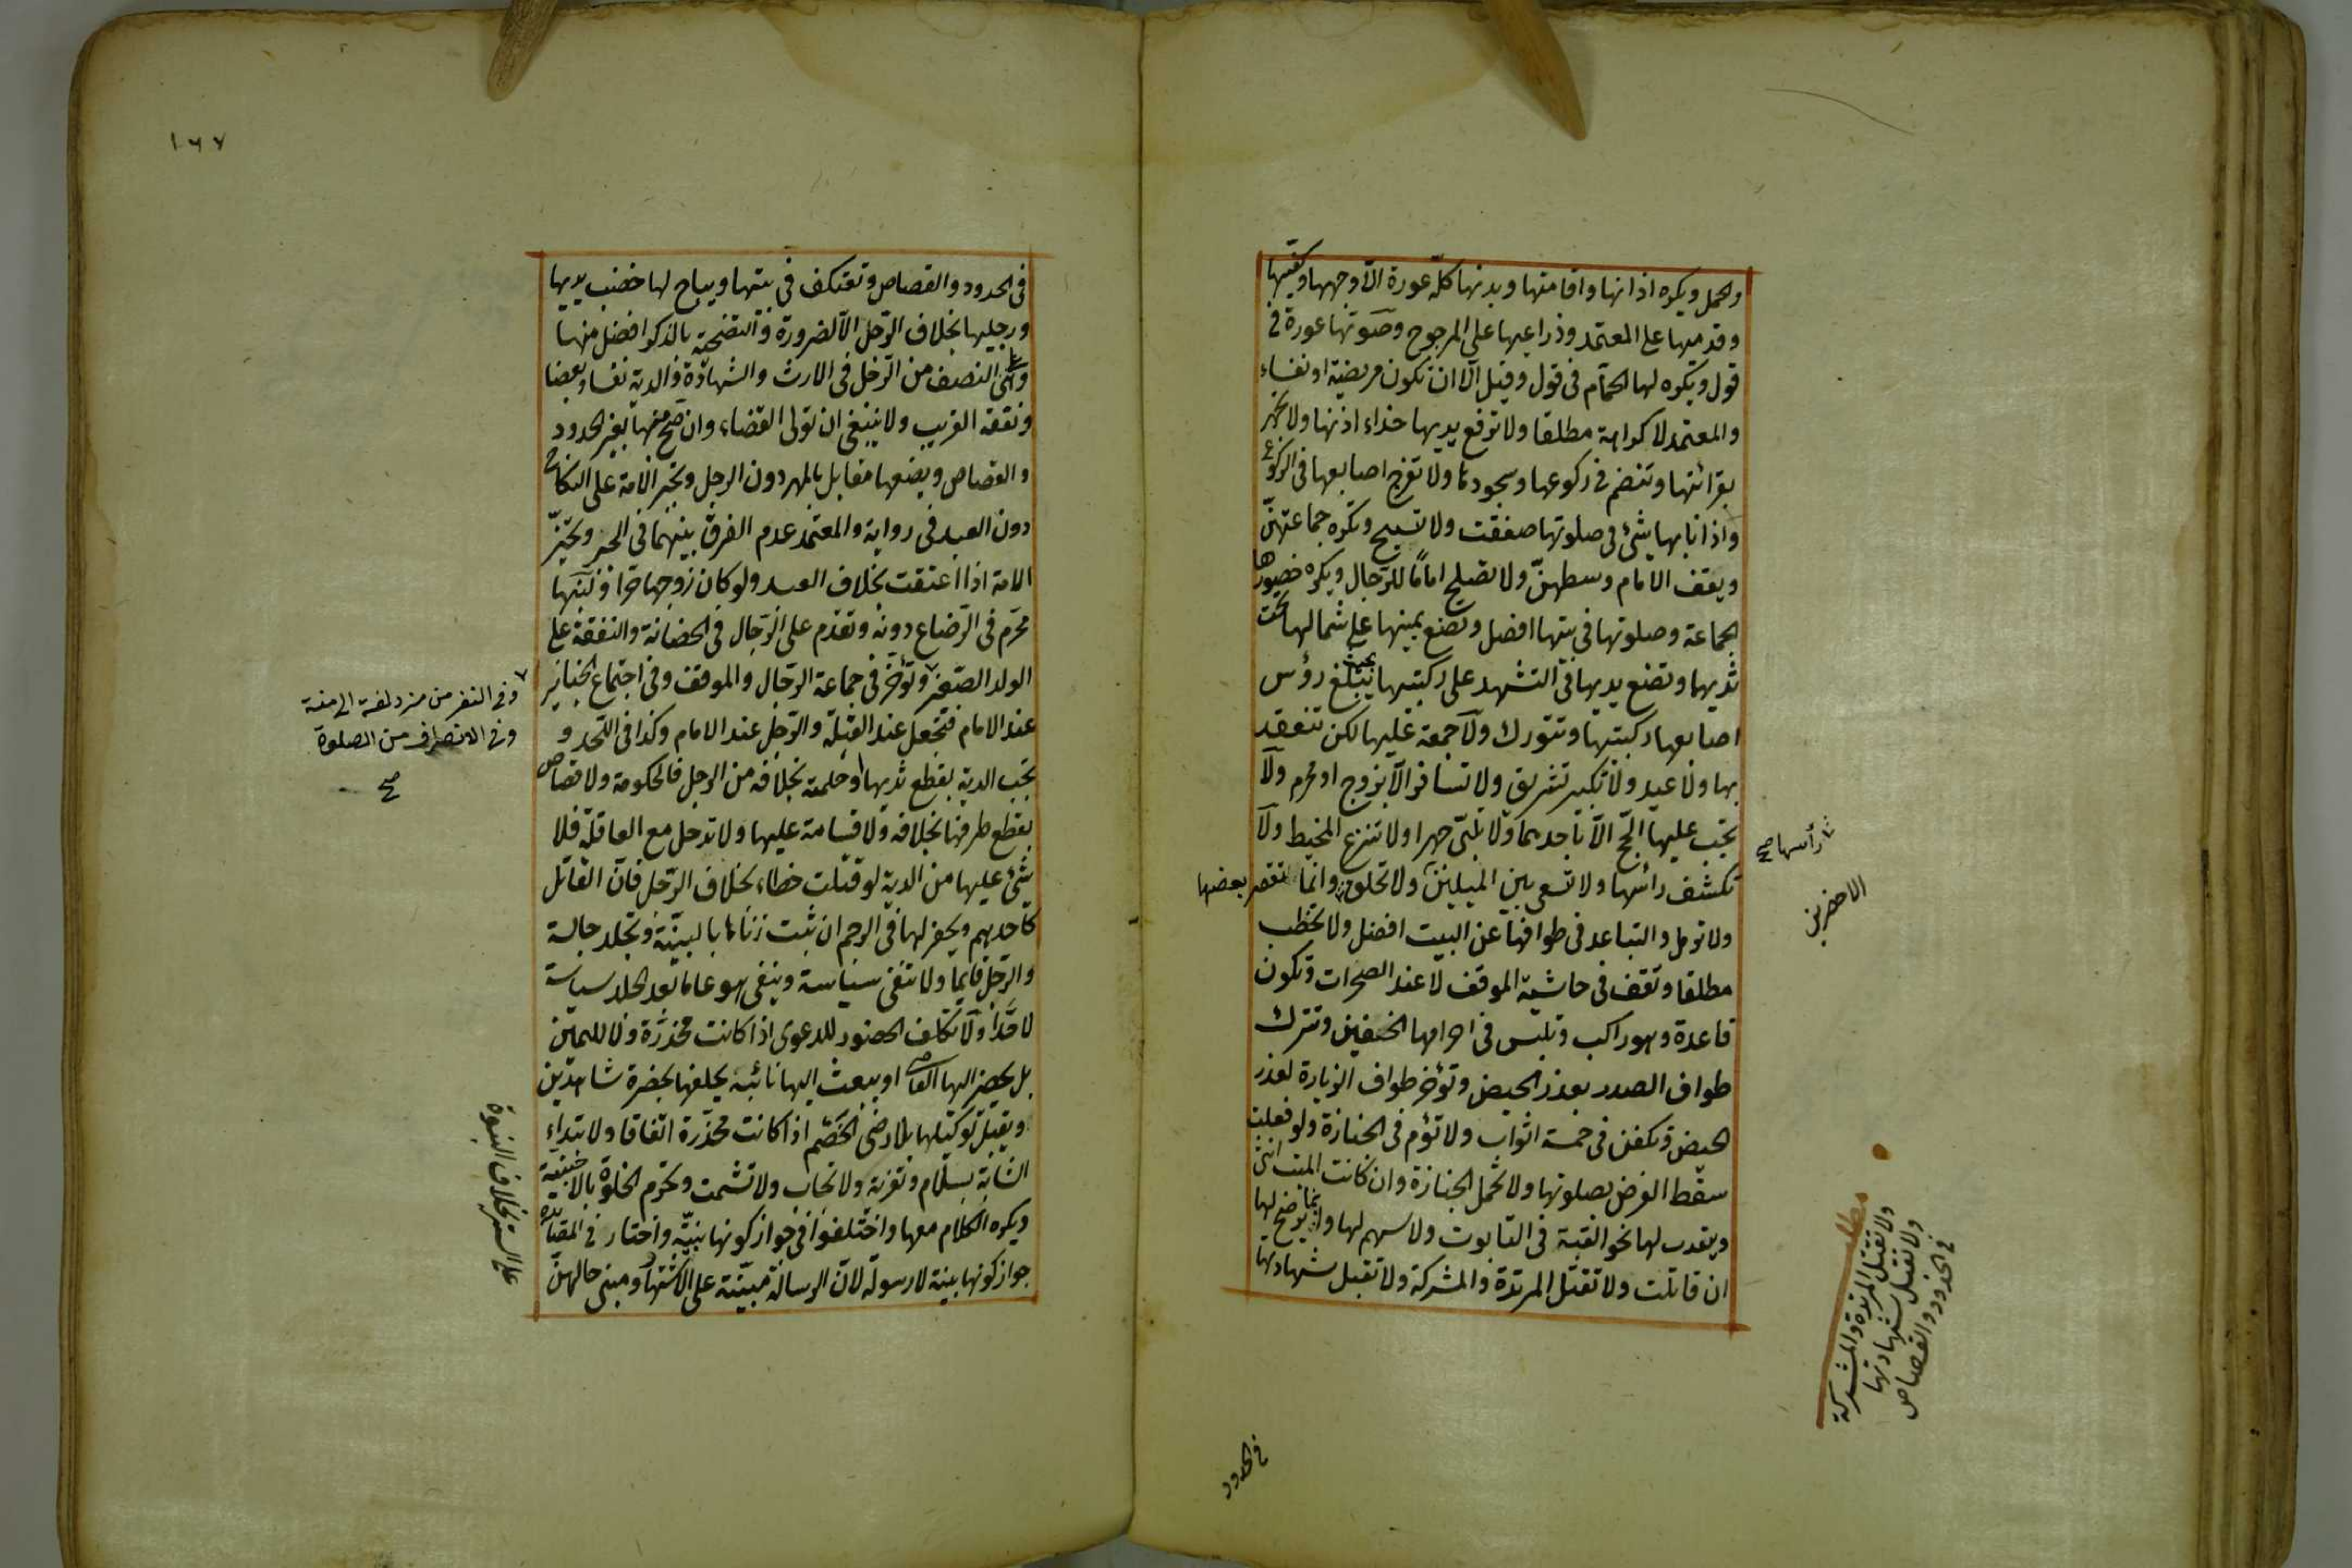 والحمل ويكره اذانها واقامتها وبدنها كله عورة الا وجهها وكفيها
وقدميها على المعتمد وذراعيها على المرجوح وصوتها عورة في
قول ويكره لها الحمام في قول وقيل الا ان تكون مريضة او نفساء
والمعتمد لا كراهة مطلقا ولا ترفع يديها حذاء اذنها ولا تجهر
بقرائتها وتنضم في ركوعها وسجودها ولا تفرج اصابعها في الركوع
واذا نابها شئ في صلوتها صفقت ولا تسبح وتكره جماعتهن
ويقف الامام وسطهن ولا تصلح اماما للرجال ويكره حضورها
الجماعة وصلوتها في بيتها افضل وتضع يمينها على شمالها تحت
ثديها وتضع يديها في التشهد على ركبتيها بحيث تبلغ رؤس
اصابعها ركبتيها وتتورك ولا جمعة عليها لكن تنعقد
بها ولا عيد ولا تكبير تشريق ولا تسافر الا بزوج او محرم ولا
يجب عليها الحج الا باحدهما ولا تلبي جهرا ولا تنزع المخيط ولا
تكشف رأسها ولا تسعى بين الميلين ولا تحلق وانما تقصر بعضها
ولا ترمل والتباعد في طوافها عن البيت افضل ولا تخطب
مطلقا وتقف في حاشية الموقف لا عند الصخرات وتكون
قاعدة وهو راكب وتلبس في احرامها الخفين وتترك
طواف الصدر بعذر الحيض وتؤخر طواف الزيارة لعذر
الحيض وتكفن في خمسة اثواب ولا تؤم في الجنازة ولو فعلت
سقط الفرض بصلوتها ولا تحمل الجنازة وان كانت الميت انثى
ويندب لها نحو القبة في التابوت ولا سهم لها وانما يرضخ لها
ان قاتلت ولا تقتل المرتدة والمشركة ولا تقبل شهادتها
رأسها صح
الاخضرين
مطلب
ولا تقتل المرتدة والمشركة
ولا تقبل شهادتها
في الحدود والقصاص
في الحدود
١٦٧
في الحدود والقصاص وتعتكف في بيتها ويباح لها خضب يديها
ورجليها بخلاف الرجل الا لضرورة والتضحية بالذكر افضل منها
وهي على النصف من الرجل في الارث والشهادة والدية نفسا وبعضا
ونفقة القريب ولا ينبغي ان تولى القضاء وان صح منها بغير الحدود
والقصاص وبضعها مقابل بالمهر دون الرجل وتجبر الامة على النكاح
دون العبد في رواية والمعتمد عدم الفرق بينهما في الجبر وتخير
الامة اذا اعتقت بخلاف العبد ولو كان زوجها حرا ولبنها
محرم في الرضاع دونه وتقدم على الرجال في الحضانة والنفقة على
الولد الصغير وتؤخر في جماعة الرجال والموقف وفي اجتماع الجنايز
عند الامام فتجعل عند القبلة والرجل عند الامام وكذا في اللحد و
تجب الدية بقطع ثديها او حلمته بخلافه من الرجل فالحكومة ولا قصاص
بقطع طرفها بخلافه ولا قسامة عليها ولا تدخل مع العاقلة فلا
شئ عليها من الدية لو قتلت خطاء بخلاف الرجل فان القاتل
كاحدهم ويحفر لها في الرجم ان ثبت زناها بالبينة وتجلد جالسة
والرجل قايما ولا تنفى سياسة وينفى هو عاما بعد الجلد سياسة
لا حدا ولا تكلف الحضور للدعوى اذا كانت مخدرة ولا لليمين
بل يحضر اليها القاضي او يبعث اليها نائبه يحلفها بحضرة شاهدين
ويقبل توكيلها بلا رضى الخصم اذا كانت مخدرة اتفاقا ولا تبتداء
الشابة بسلام وتعزية ولا تجاب ولا تشمت وتحرم الخلوة بالاجنبية
ويكره الكلام معها واختلفوا في جواز كونها نبية واختار في المسايرة
جواز كونها نبية لا رسولة لان الرسالة مبنية على الاشتهار ومبنى حالهن
وفي النفر من مزدلفة الى منى
وفي الانصراف من الصلوة
صح
على الستر بخلاف النبوة